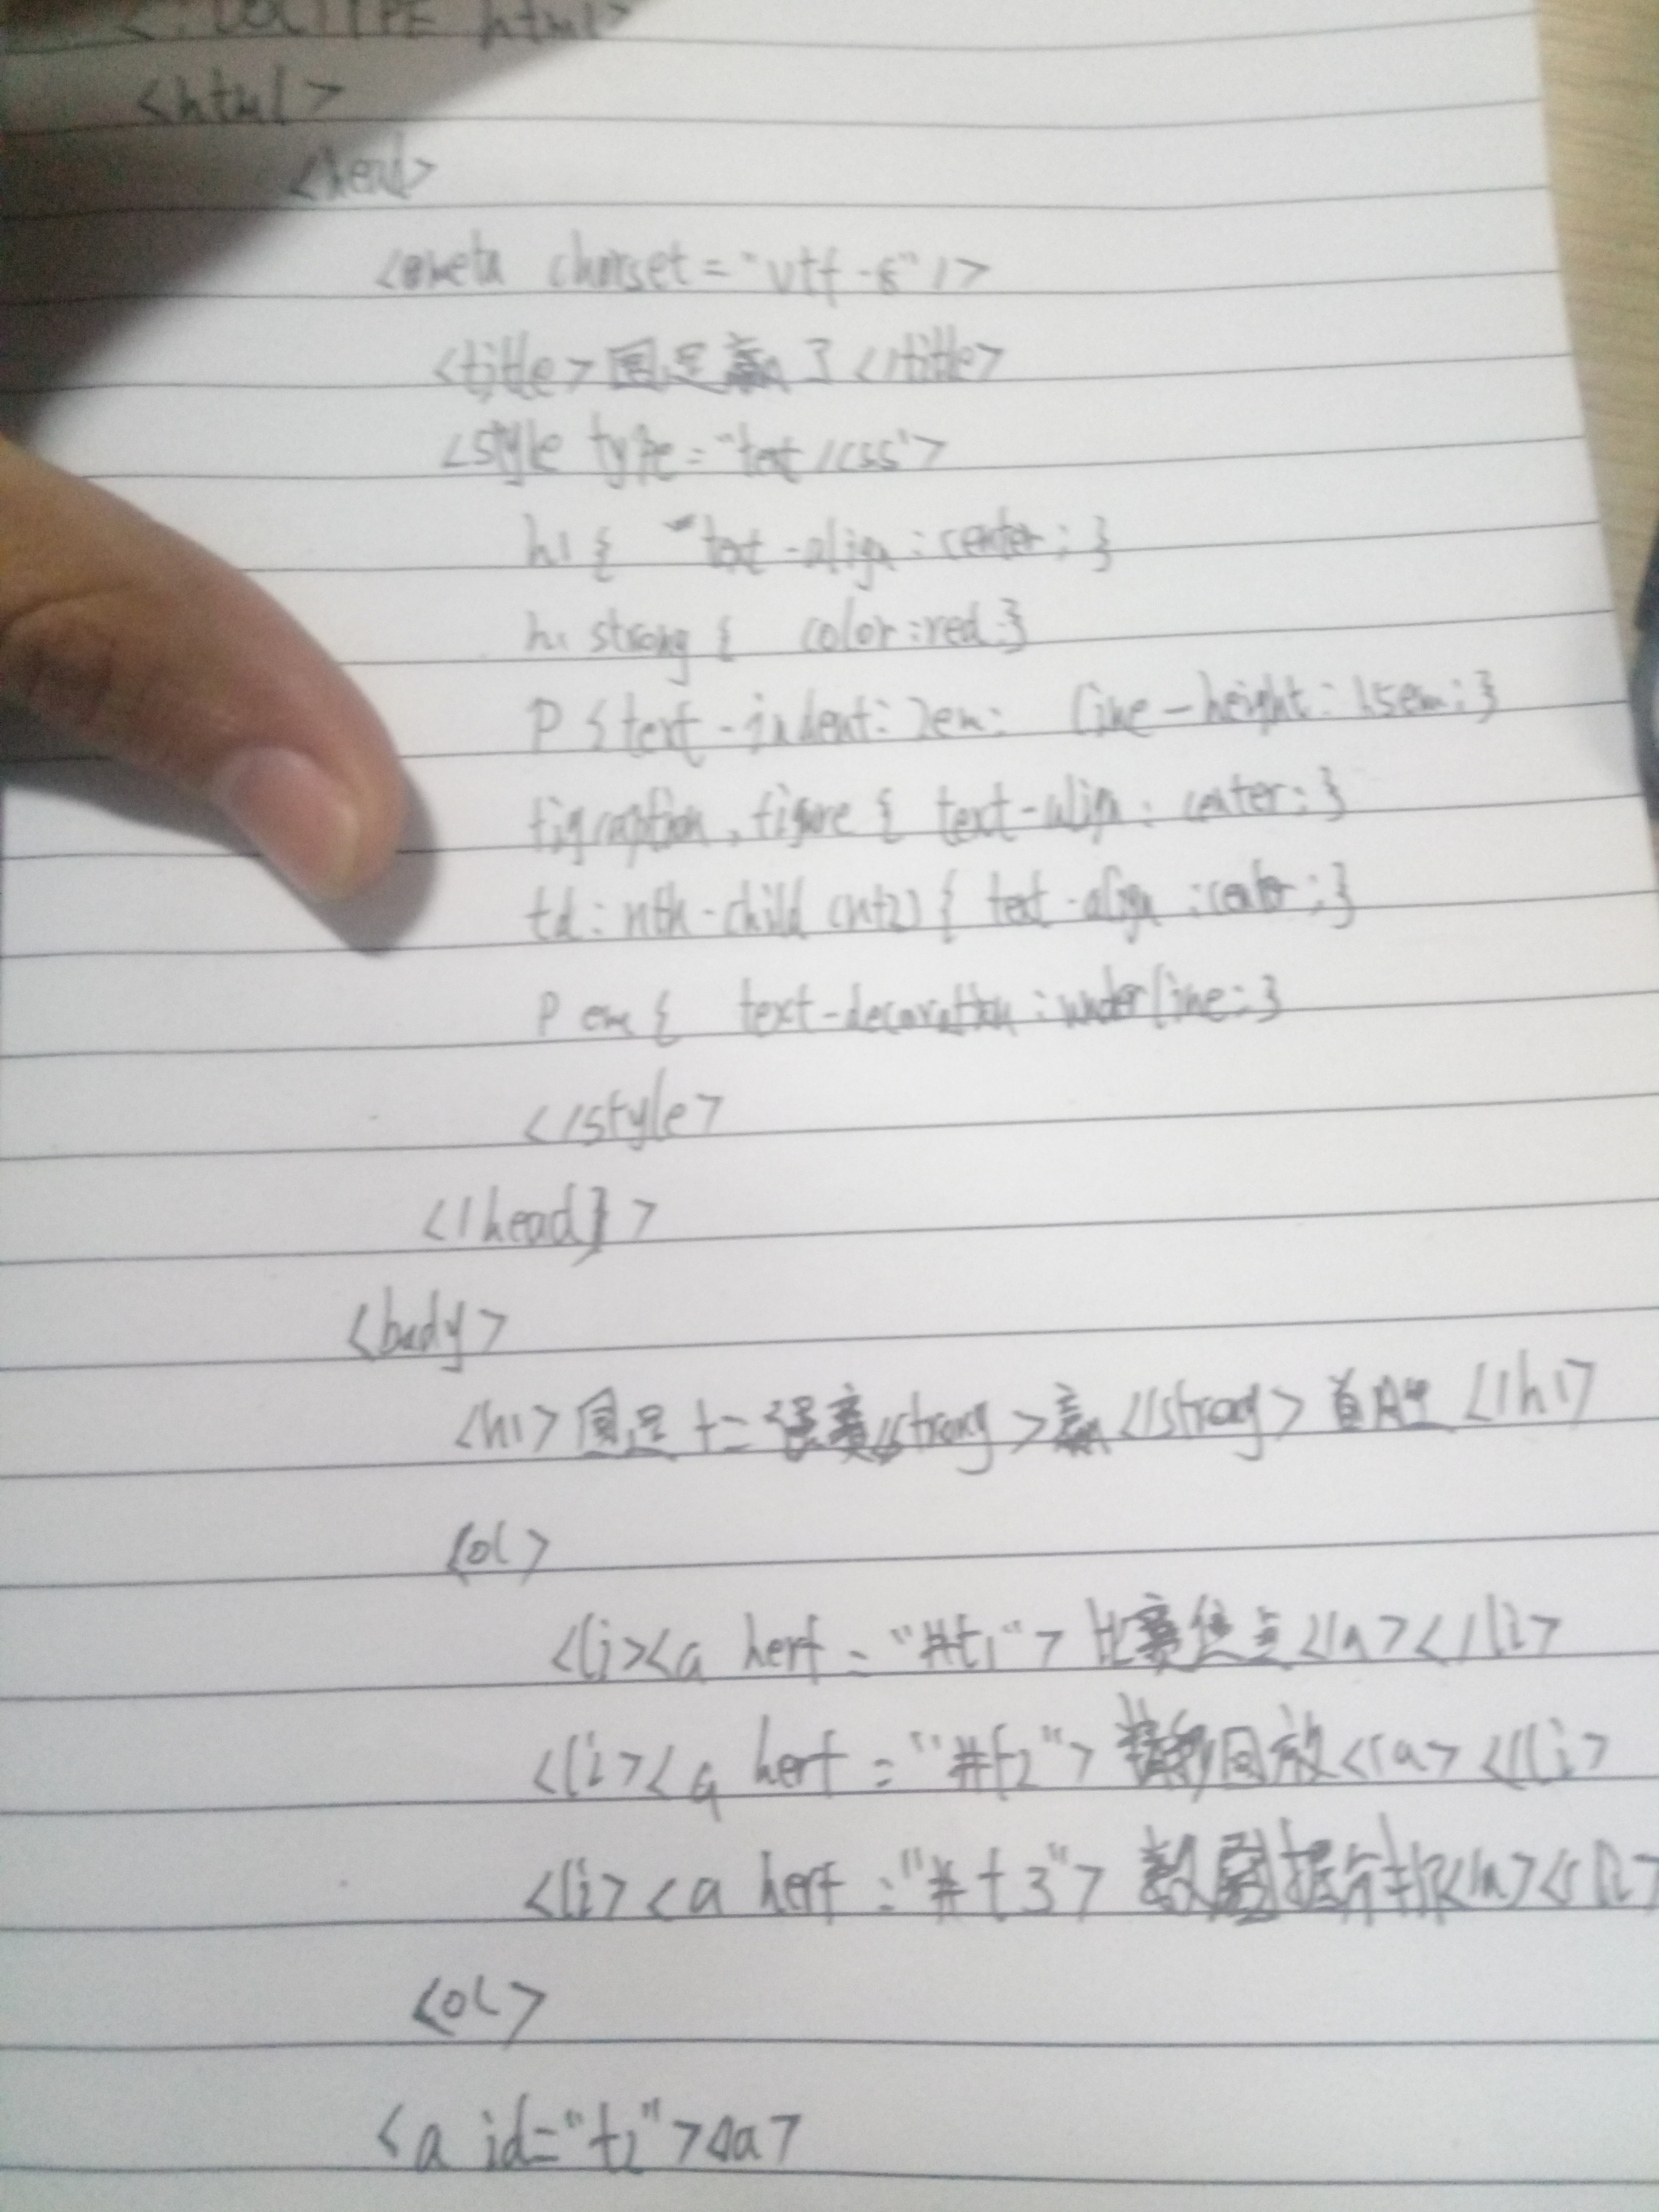 <!DOCTYPE html>
<html>
<head>
<meta charset="utf-8"/>
<title>国足赢了</title>
<style type="text/css">
h1 { text-align:center; }
h1 strong { color:red }
p { text-indent: 2em; line-height: 1.5em; }
figcaption, figure { text-align: center; }
td:nth-child(n+2) { text-align:center; }
p em { text-decoration:underline; }
</style>
</head>
<body>
<h1>国足十二强赛<strong>赢</strong>首胜</h1>
<ol>
<li><a herf="#t1">比赛焦点</a></li>
<li><a herf="#t2">精彩回放</a></li>
<li><a herf="#t3">数据分析</a></li>
<ol>
<a id="t1"></a>